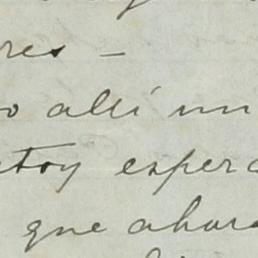 res –
o allí un
stoy esper
que ahora